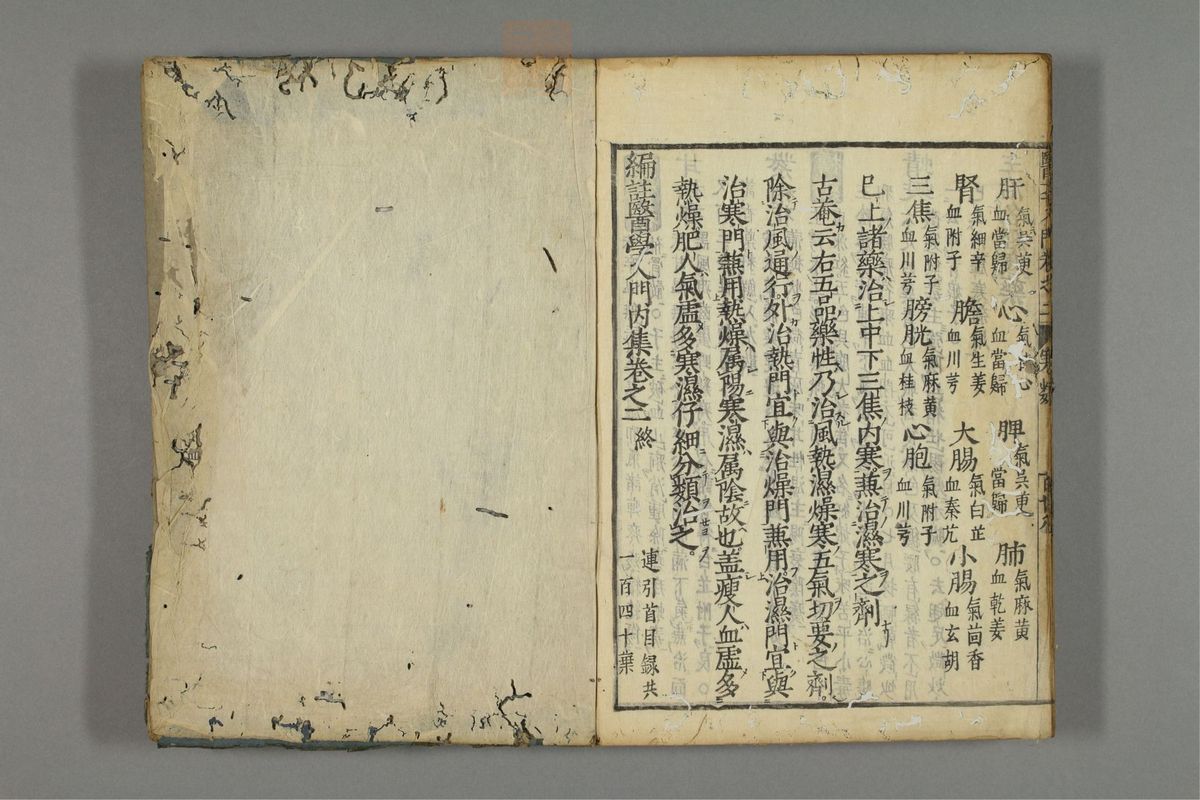 肝 氣吳茱 血當歸 心 氣 心 血當歸 脾 氣吳茱 當歸 肺 氣麻黃 血乾姜
腎 氣細辛 血附子 膽 氣生姜 血川芎 大腸 氣白芷 血秦艽 小腸 氣茴香 血玄胡
三焦 氣附子 血川芎 膀胱 氣麻黃 血桂枝 心胞 氣附子 血川芎
已上諸藥治上中下三焦内寒兼治濕寒之劑
古菴云右五品藥性乃治風熱濕燥寒五氣切要之劑
除治風通行外治熱門宜與治燥門兼用治濕門宜與
治寒門兼用熱燥属陽寒濕属陰故也盖瘦人血虛多
熱燥肥人氣虛多寒濕仔細分類治之
編註醫學入門内集卷之二 終
連引首目録共
一百四十葉